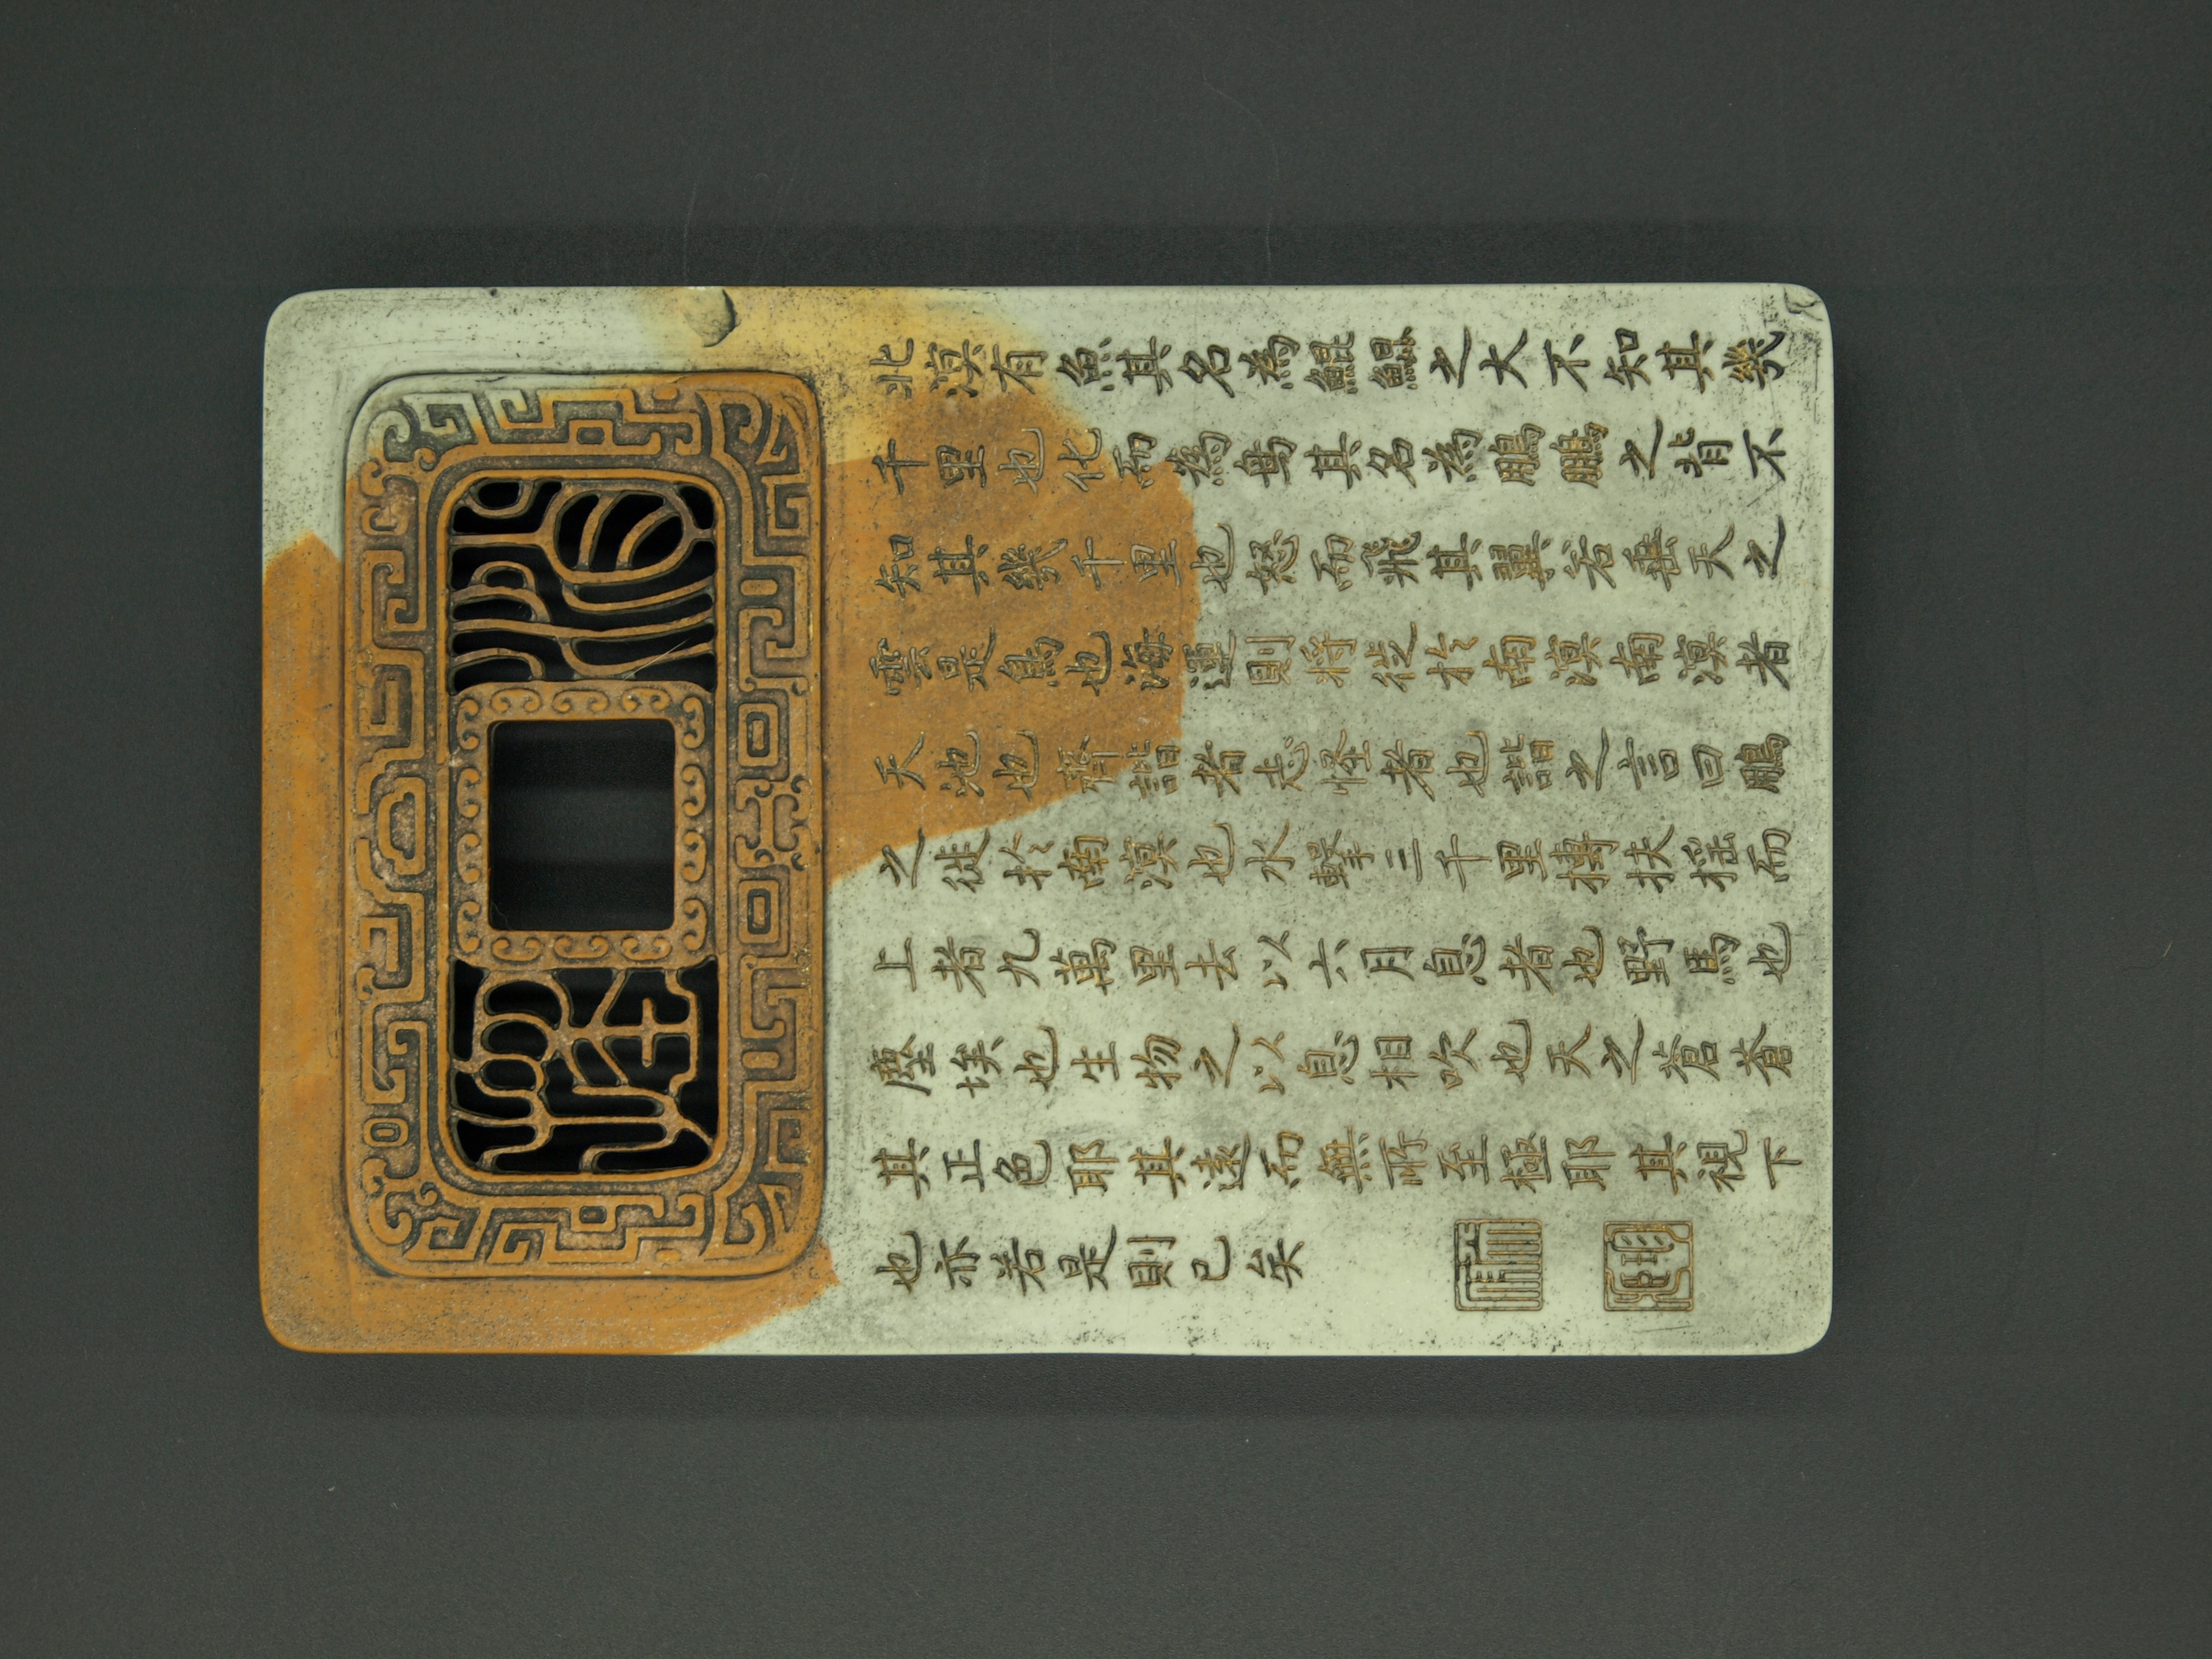 北溟有魚其名為鯤鯤之大不知其幾
千里也化而為鳥其名為鵬鵬之背不
知其幾千里也怒而飛其翼若垂天之
雲是鳥也海運則將徙於南溟南溟者
天池也齊諧者志怪者也諧之言曰鵬
之徙於南溟也水擊三千里摶扶搖而
上者九萬里去以六月息者也野馬也
塵埃也生物之以息相吹也天之蒼蒼
其正色耶其遠而無所至極耶其視下
也亦若是則已矣